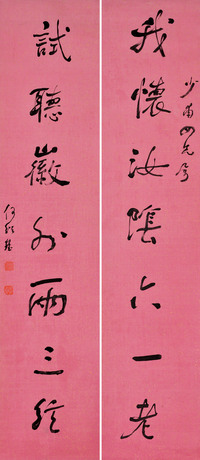 少甫四兄
我懷汝陰六一老
試聽徽外兩三絃
何紹基